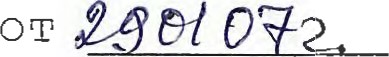 от 290107г.